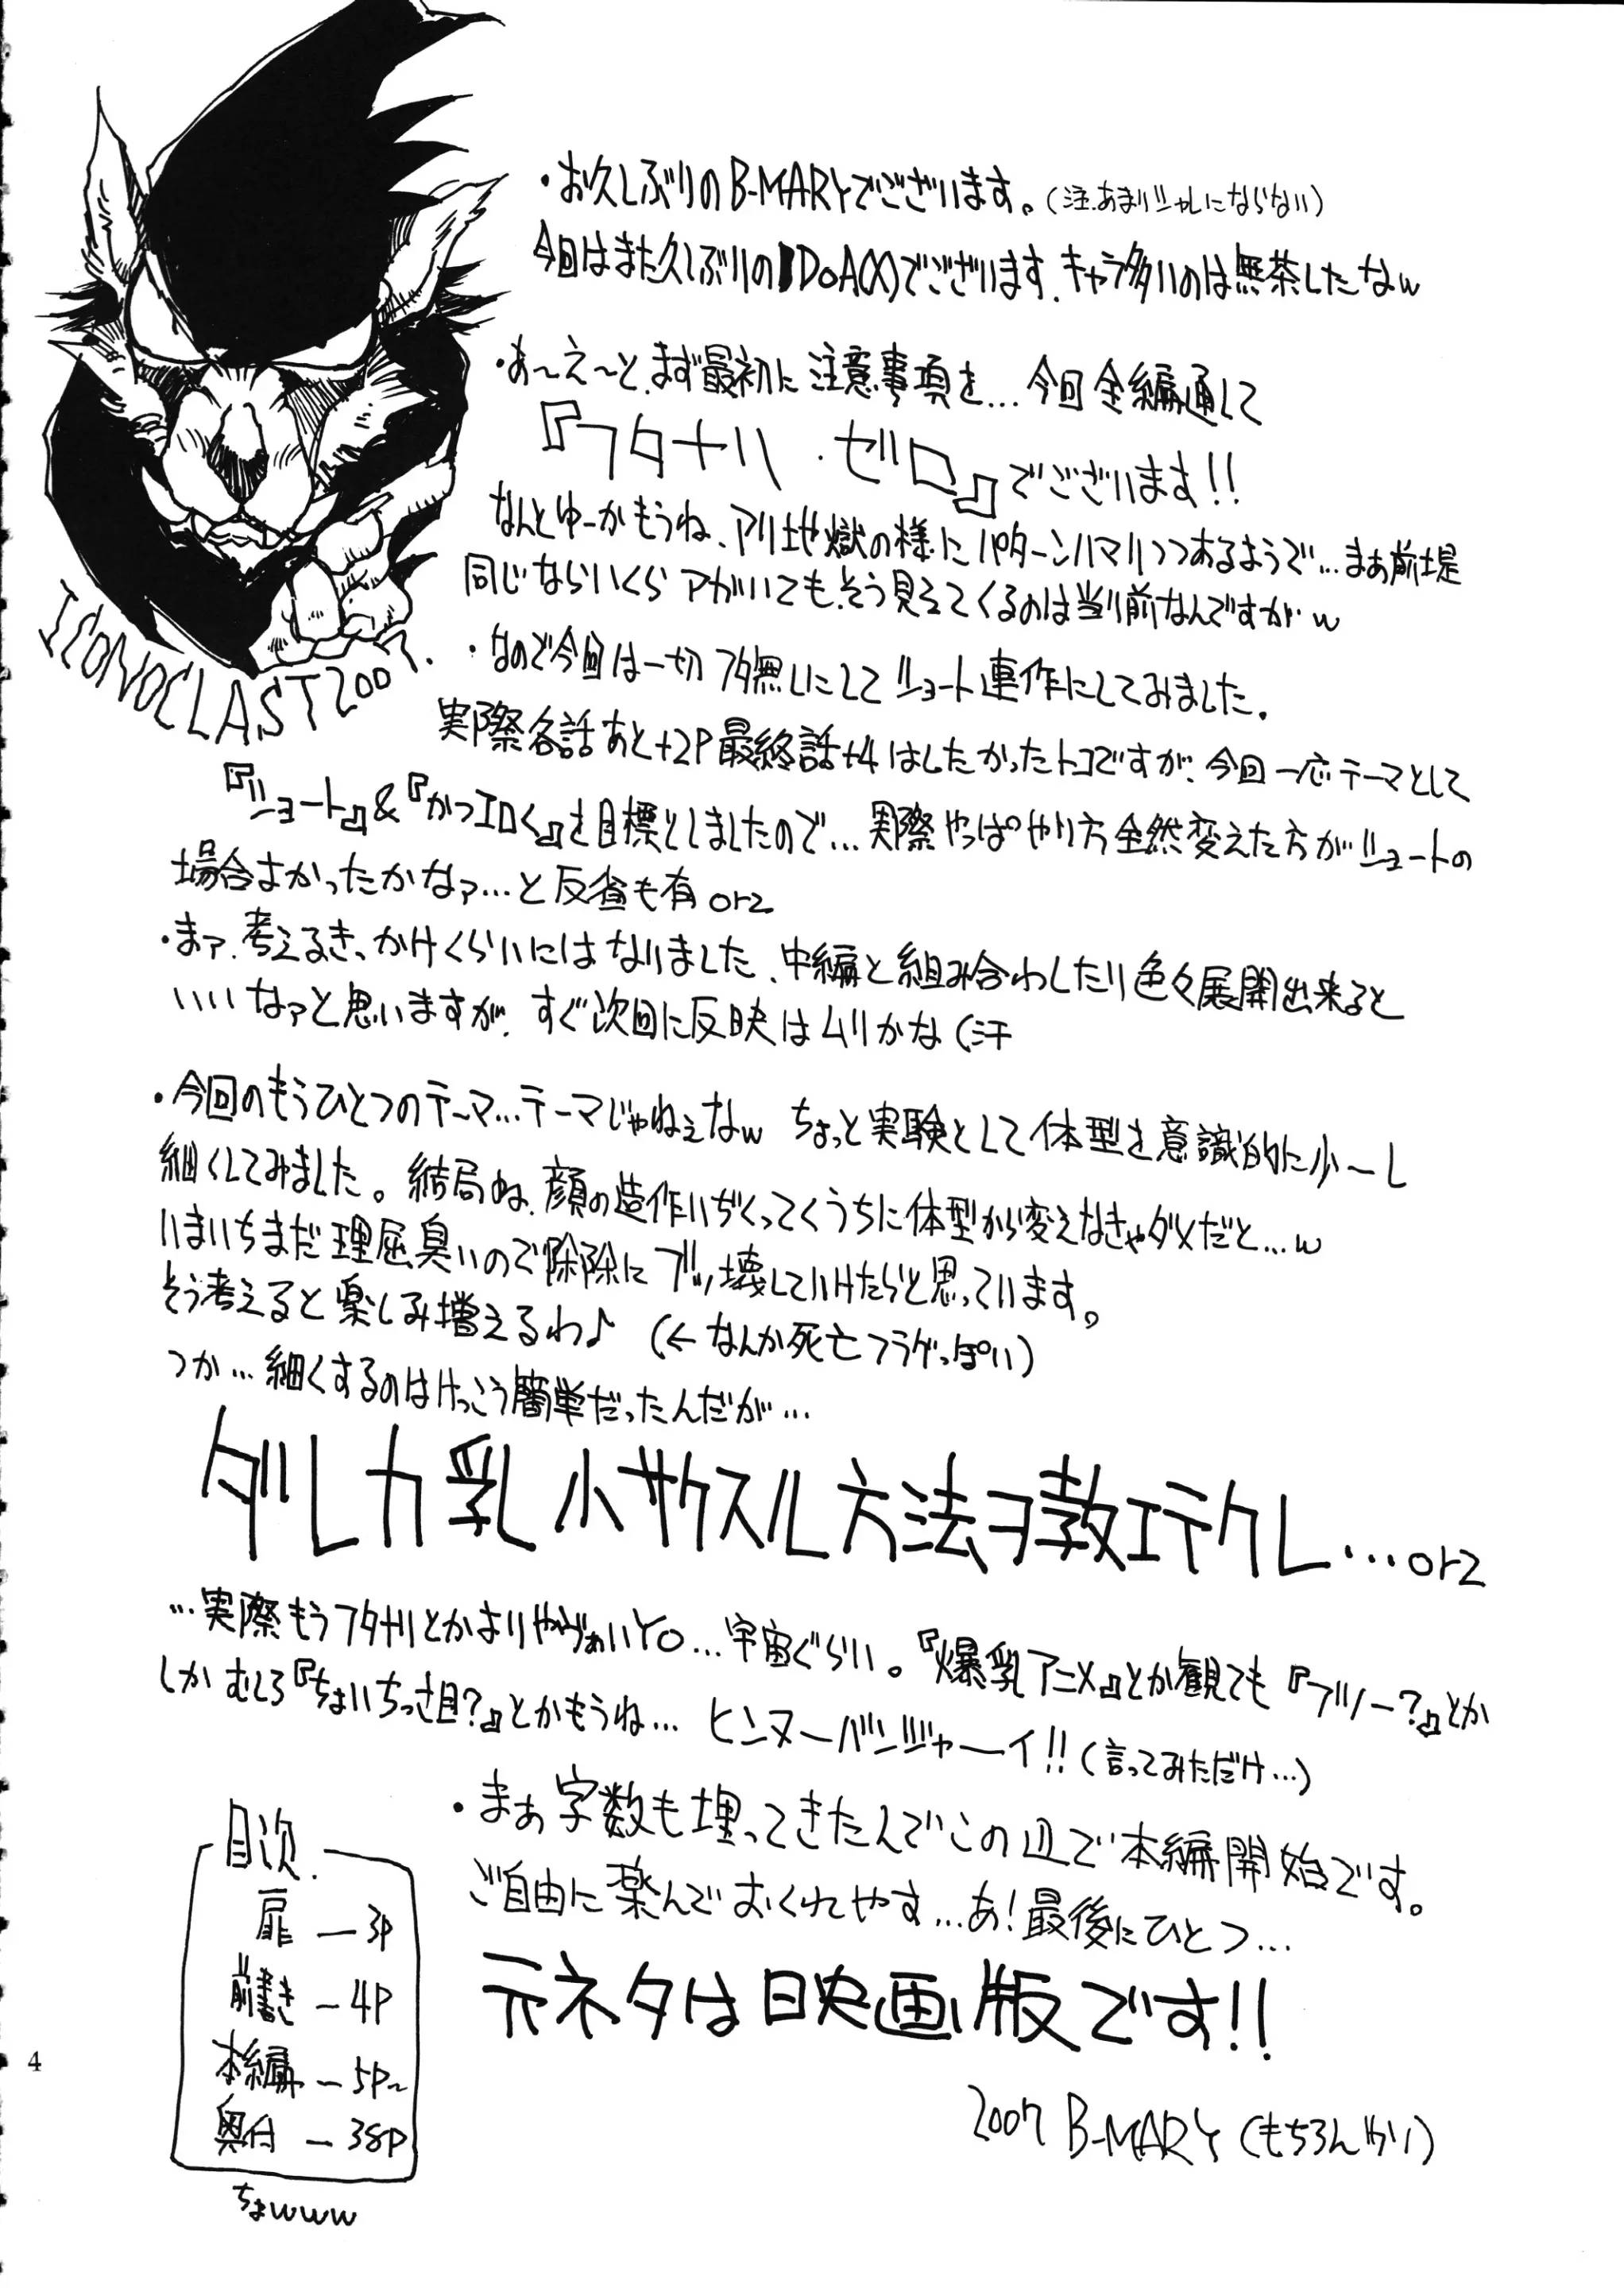 ・お久しぶりのB-MARYでございます。(注.あまりシャレにならない)
今回はまた久しぶりのDOA(X)でございます.キャラ多いのは無茶したなw
・あ〜え〜と、まず最初に注意事項を…今回全編通して
『フタナリ・ゼロ』でございます!!
なんとゆーかもうね、アリ地獄の様にパターンハマりつつあるようで…まぁ前堤
同じならいくらアガいても、そう見えてくるのは当り前なんですがw
・なので今回は一切フタ無しにしてショート連作にしてみました.
実際各話あと+2P最終話+4はしたかったトコですが、今回一応テーマとして
『ショート』&『かつエロく』を目標としましたので…実際やっぱやり方全然変えた方がショートの
場合よかったかなァ…と反省も有orz
・まァ.考えるきっかけくらいにはなりました.中編と組み合わしたり色々展開出来ると
いいなァと思いますが、すぐ次回に反映はムリかな(汗
・今回のもうひとつのテーマ…テーマじゃねぇなw ちょっと実験として体型を意識的に少〜し
細くしてみました。結局ね、顔の造作いぢくってくうちに体型から変えなきゃダメだと…w
いまいちまだ理屈臭いので除除にブッ壊していけたらと思っています。
そう考えると楽しみ増えるわ♪ (←なんか死亡フラグっぽい)
つか…細くするのはけっこう簡単だったんだが…
ダレカ乳小サクスル方法ヲ教エテクレ…orz
…実際もうフタナリとかよりやヴぁいYO…宇宙ぐらい。『爆乳アニメ』とか観ても『フツー?』とか
しかむしろ『ちょいちっさ目?』とかもうね… ヒンヌーバンジャーイ!!(言ってみただけ…)
・まぁ字数も埋ってきたんでこの辺で本編開始です。
ご自由に楽んでおくれやす…あ!最後にひとつ…
元ネタは映画版です!!
2007 B-MARY (もちろん)
ICONOCLAST2007.
目次.
扉 ― 3P
前書き ― 4P
本編 ― 5P〜
奥付 ― 38P
ちょwww
4